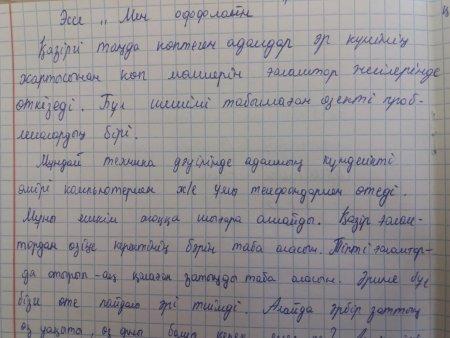 Эссе „ Мен офофлайн
Қазіргі таңда көптеген адамдар әр күнінің
жартысынан көп мөлшерін ғаламтор желілерінде
өткізеді. Бұл шешімі табылмаған өзекті проб-
лемалардың бірі.
Мұндай техника дәуірінде адамның күнделікті
өмірі компьютермен ж/е ұялы телефондармен өтеді.
Мұны ешкім жоққа шығара алмайды. Қазір ғалам-
тордан өзіңе керектінің бәрін таба аласың. Тіпті ғаламтор-
да отырып-ақ қалаған затыңды таба аласың. Әрине бұл
бізге өте пайдалы әрі тиімді. Алайда әрбір заттың
өз уақыты, өз